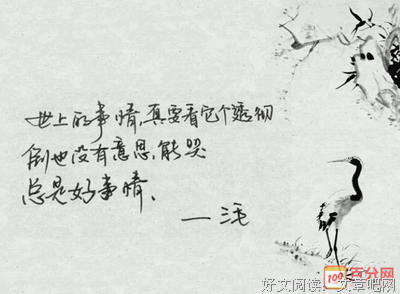 世上的事情,真要看它个透彻
倒也没有意思,能哭
总是好事情、
—三毛
百分网
100
好文阅读:文章吧网